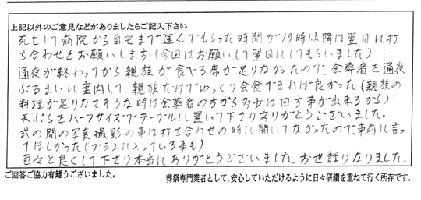 上記以外のご意見などがありましたらご記入下さい
死亡して病院から自宅まで運んでもらった時間が19時以降は翌日に打
ち合わせをお願いします(今回はお願いして翌日にしてもらいました)
通夜が終わってから親族が食べる席が足りなかったので会葬者を通夜
ぶるまいに案内して、親族だけでゆっくり会食できれば良かった(親族の
料理が足りなさそうな時は会葬者の方から
天ぷらをハーフサイズでテーブルに置いて下さりありがとうございました。
式の間の写真撮影の事は打ち合わせの時に聞いてなかったので事前に言っ
てほしかった(プランに入っている事も)
色々と良くして下さり本当にありがとうございました。お世話になりました。
ご回答ご協力有難うございました。
葬祭専門業者として、安心していただけるように日々研鑽を重ねて行く所存です。